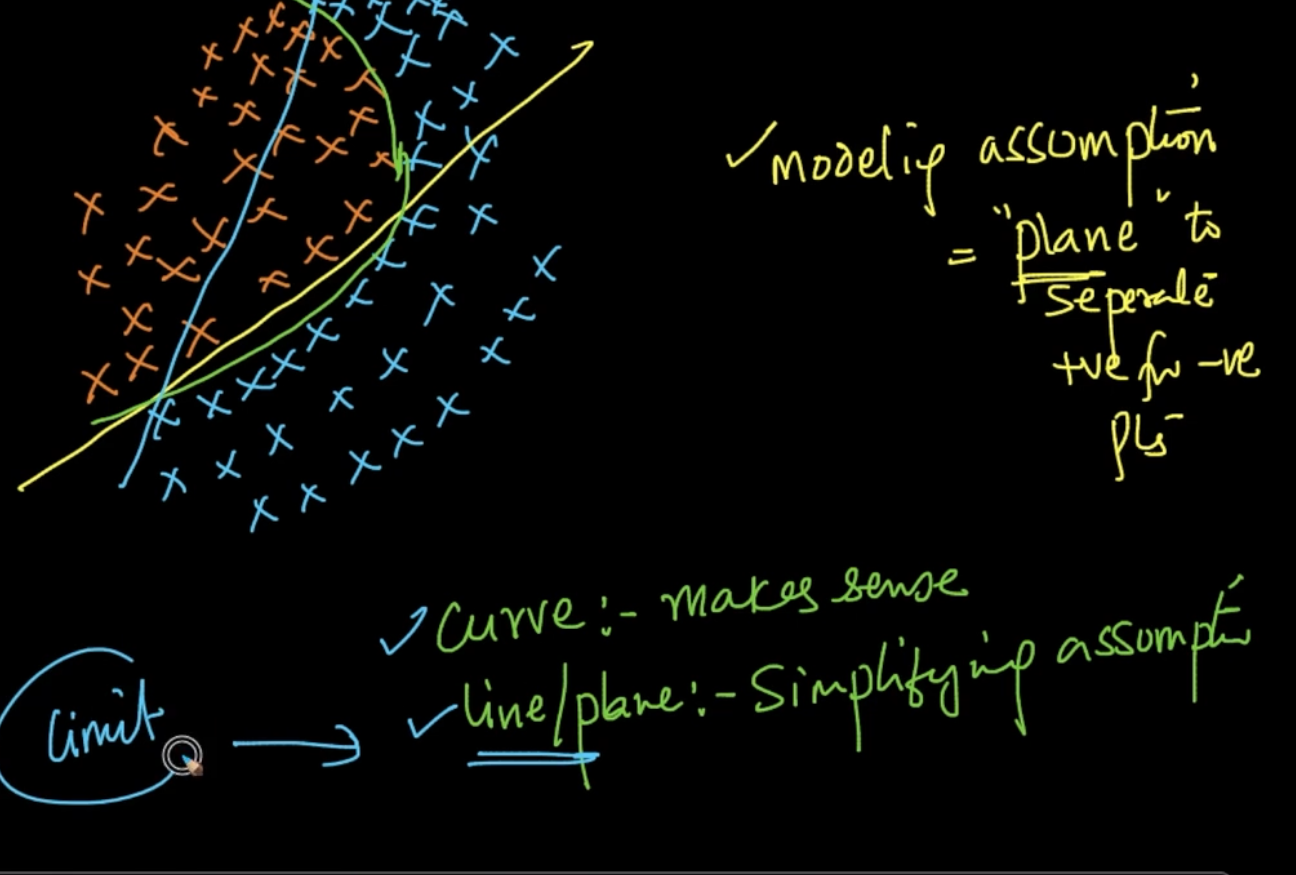 modelig assumption
= "plane" to
seperate
+ve fr -ve
pts
Curve :- makes sense
line/plane :- Simplifying assumpt
limit